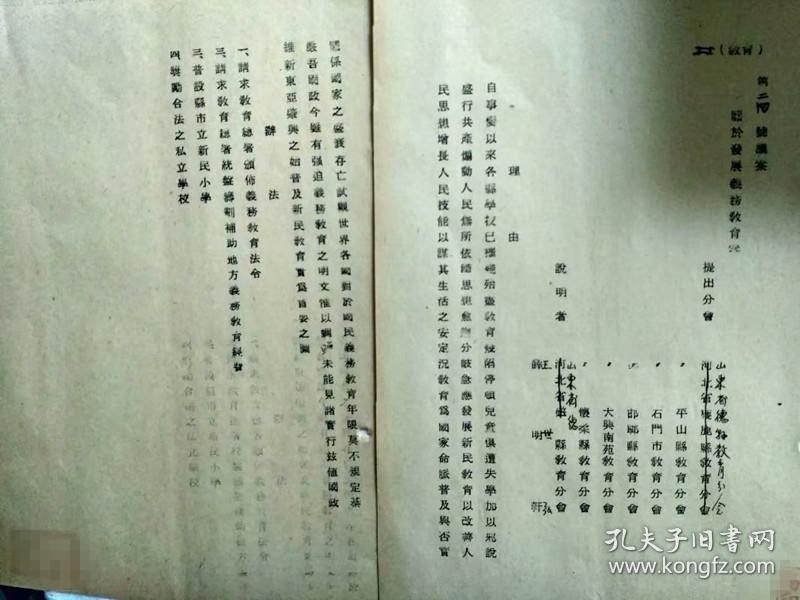 （教育）
第二四號議案
關於發展義務教育案
提出分會
山東省德縣教育分會
河北省鹿縣教育分會
平山縣教育分會
石門市教育分會
邯鄲縣教育分會
大興南苑教育分會
懷柔縣教育分會
說明者
山東省德
河北省雄縣教育分會
王世弘
薛明軒
理由
自事變以來各縣學校已摧殘殆盡教育缺陷停頓兒童俱遭失學加以邪說
盛行共產煽動人民無所依歸思想愈趨分歧急應發展新民教育以改善人
民思想增長人民技能以謀其生活之安定況教育為國家命脈普及與否實
關係國家之盛衰存亡試觀世界各國對於國民義務教育年限莫不規定甚
嚴吾國政令雖有强迫義務教育之明文惟以未能見諸實行茲值國政
維新東亞復興之始普及新民教育實為首要之圖
辦法
一、請求教育總署頒佈義務教育法令
二、請求教育總署統盤籌劃補助地方義務教育經費
三、普設縣市立新民小學
四、獎勵合法之私立學校
孔夫子旧书网
www.kongfz.com